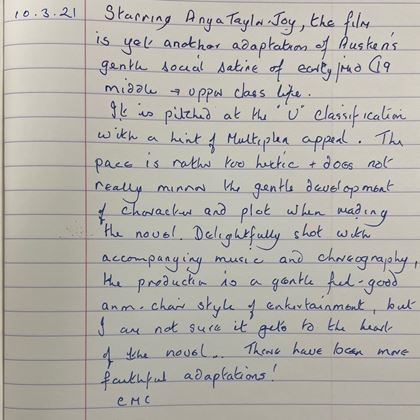 10.3.21 Starring Anya Taylor-Joy, the film
is yet another adaptation of Austen's
gentle social satire of early/mid C19
middle → upper class life.
It is pitched at the "U" classification
with a hint of Multiplex appeal. The
pace is rather too hectic + does not
really mirror the gentle development
of character and plot when reading
the novel. Delightfully shot with
accompanying music and choreography,
the production is a gentle feel-good
arm-chair style of entertainment, but
I am not sure it gets to the heart
of the novel... There have been more
faithful adaptations!
CMC